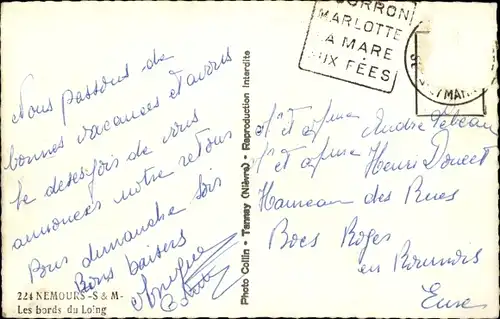 BOURRON
MARLOTTE
LA MARE
AUX FÉES
Nous passons de
bonnes vacances et avons
le desespoir de vous
annoncer notre retour
Pour dimanche soir
Bons baisers
224 NEMOURS -S & M-
Les bords du Loing
Photo Collin - Tannay (Nièvre) - Reproduction Interdite
Mr et Mme André Lebeau
Mr et Mme Henri Doucet
Hameau des Rues
Bocs Roger
en Roumois
Eure